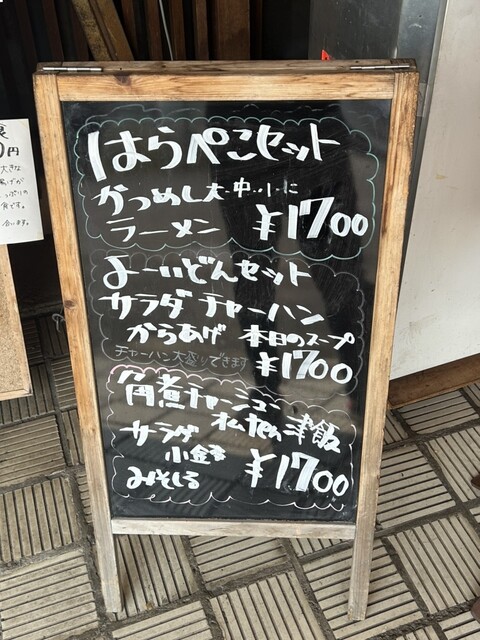 はらぺこセット
かつめし大・中・小に
ラーメン ¥1700
よーいどんセット
サラダ チャーハン
からあげ 本日のスープ
チャーハン大盛りできます ¥1700
角煮チャーシュー
津飯
サラダ
小金寺 ¥1700
みそしる
円
大きな
食です。